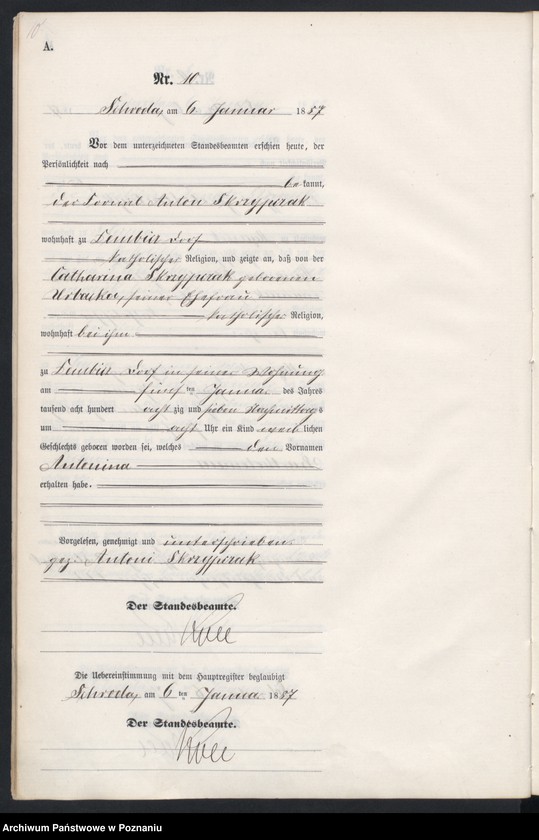 A.
Nr. 10
Schroda, am 6 Januar 1887
Vor dem unterzeichneten Standesbeamten erschien heute, der
Persönlichkeit nach
bekannt,
der Anton Skrzypczak
wohnhaft zu Dorf
katholischer Religion, und zeigte an, daß von der
Catharina Skrzypczak geborenen
seiner Ehefrau
katholischer Religion,
wohnhaft bei ihm
zu Dorf in seiner Wohnung
am fünf ten Januar des Jahres
tausend acht hundert acht zig und sieben Nachmittags
um acht Uhr ein Kind weib lichen
Geschlechts geboren worden sei, welches den Vornamen
Antonina
erhalten habe.
Vorgelesen, genehmigt und unterschrieben
gez. Antoni Skrzypczak
Der Standesbeamte.
Die Uebereinstimmung mit dem Hauptregister beglaubigt
Schroda, am 6 ten Januar 1887
Der Standesbeamte.
Archiwum Państwowe w Poznaniu